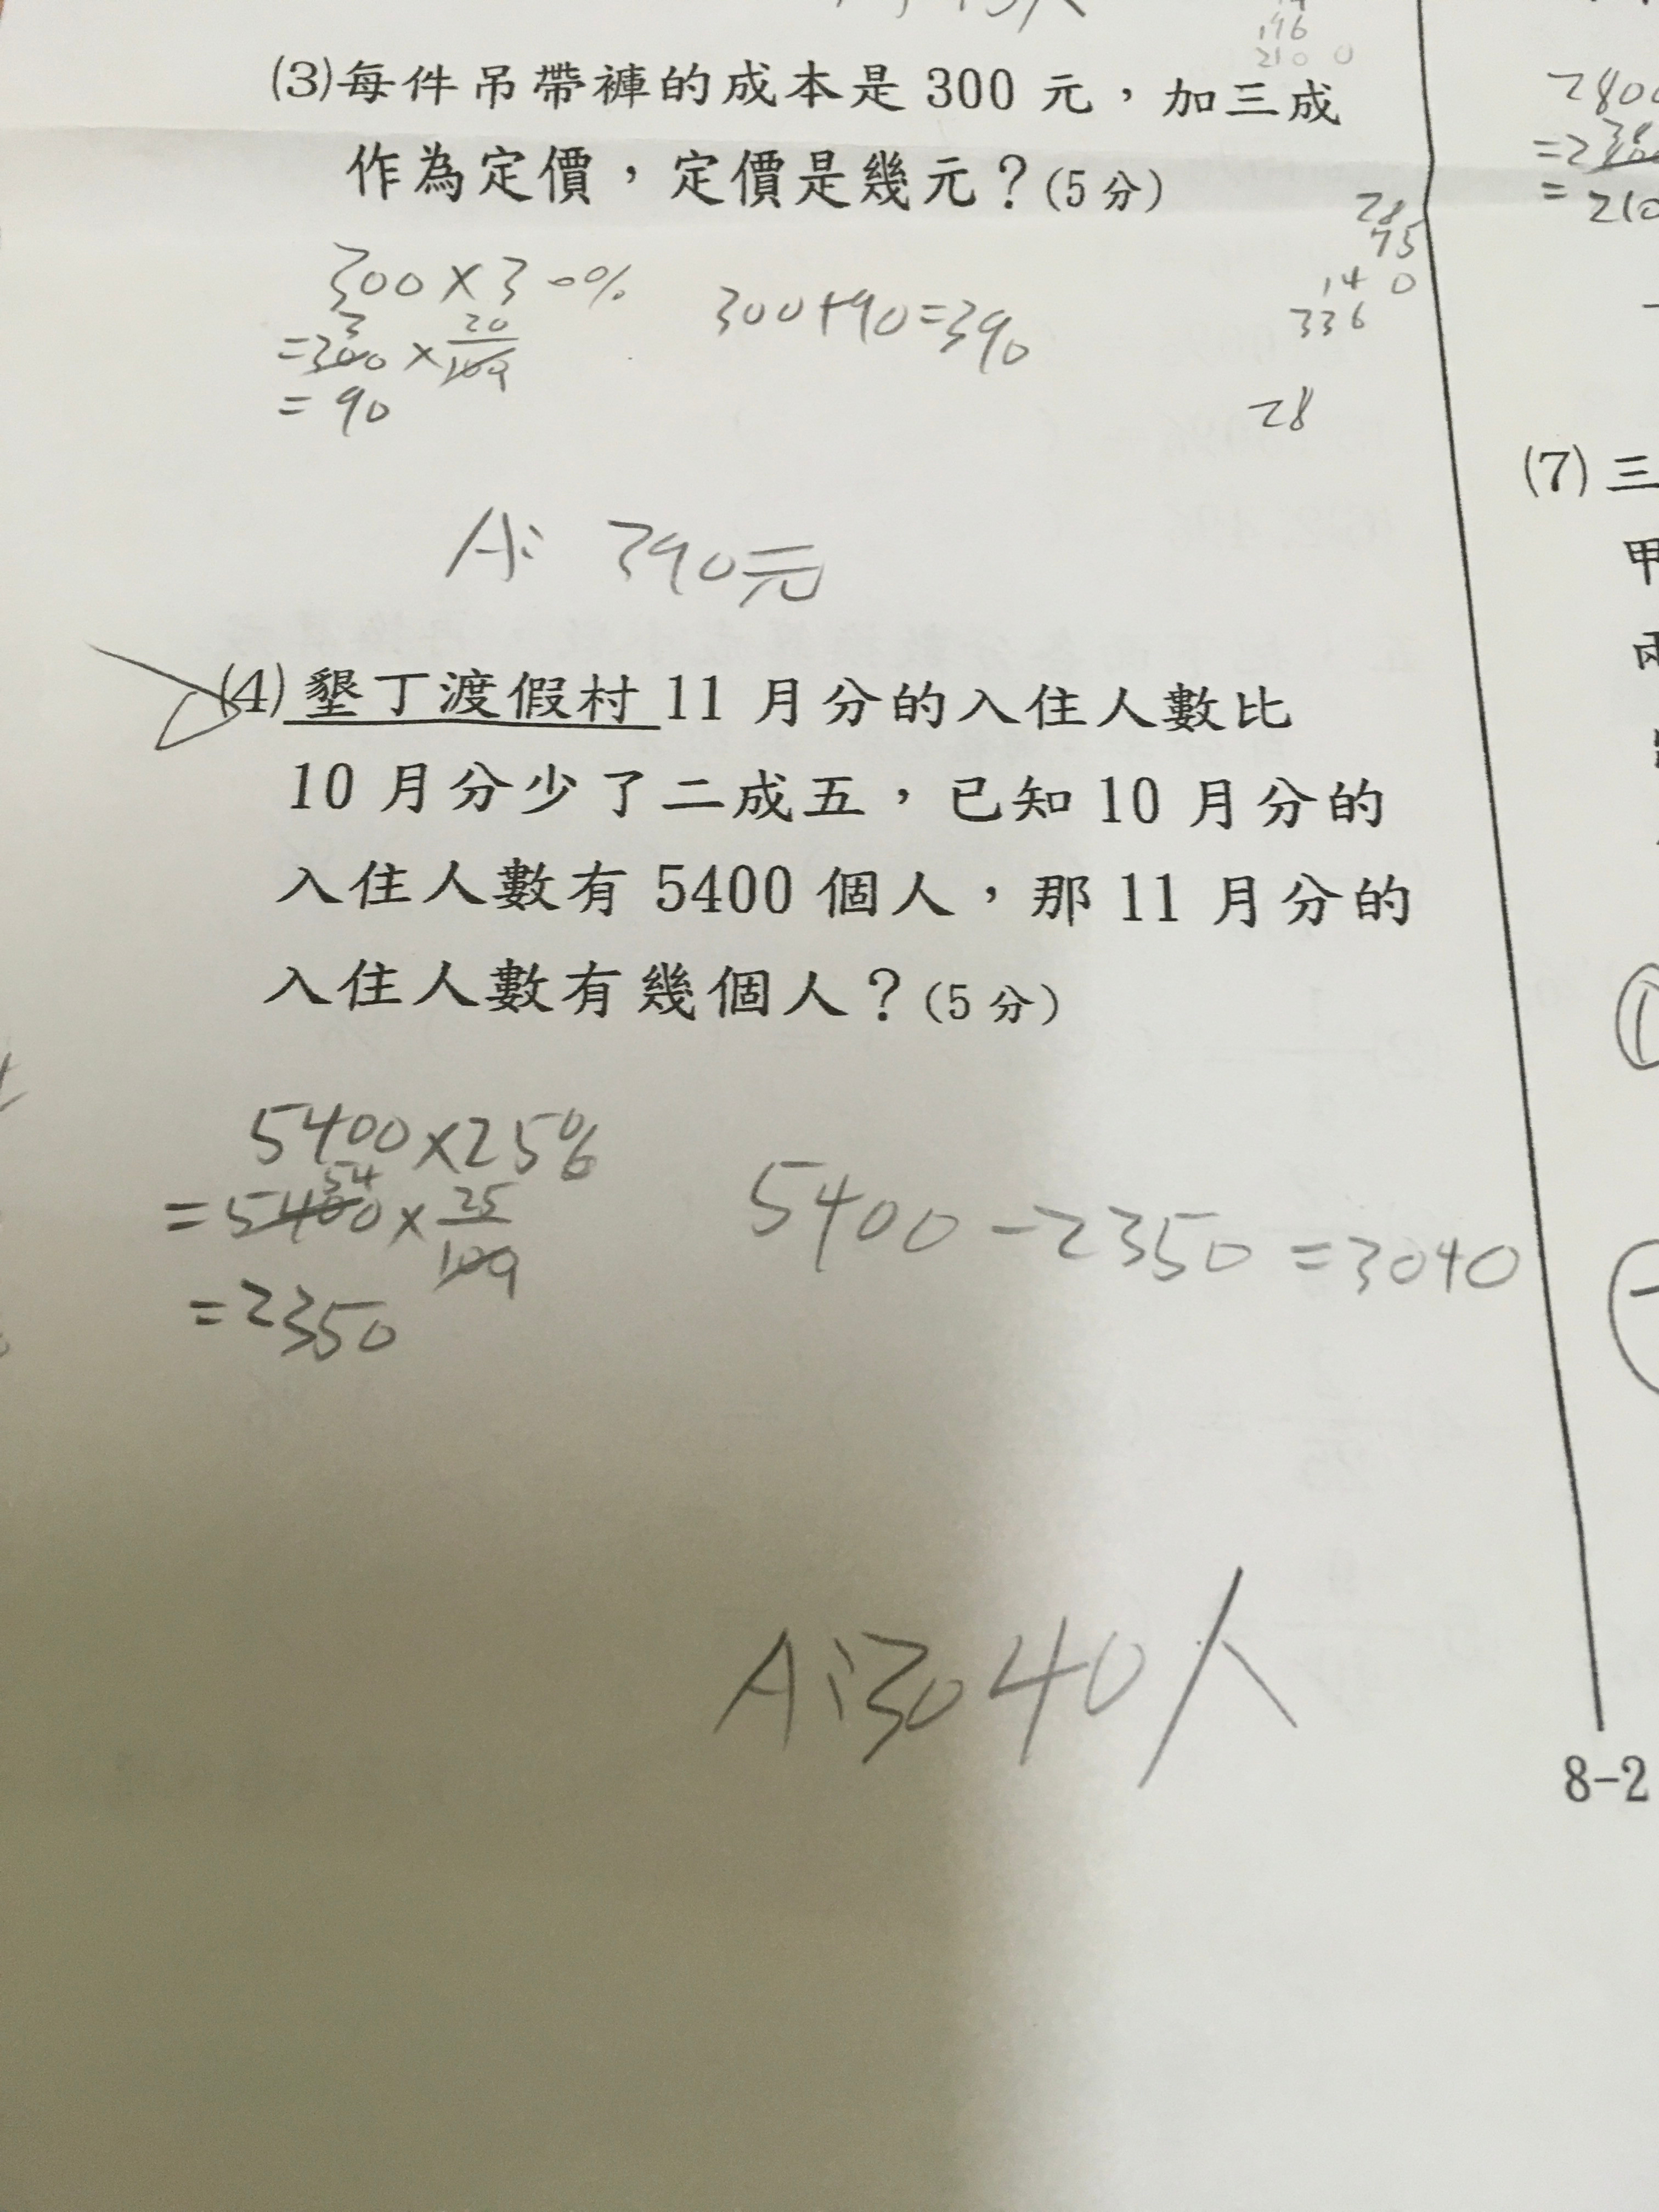 196
210 0
(3)每件吊帶褲的成本是 300 元，加三成
作為定價，定價是幾元？(5分)
300×30%
3 20
=300×
=90
300+90=390
A: 390元
28
75
140
336
28
(4)墾丁渡假村 11 月分的入住人數比
10 月分少了二成五，已知 10 月分的
入住人數有 5400 個人，那 11 月分的
入住人數有幾個人？(5分)
5400×25%
54
=5400×25/100
=2350
5400-2350=3040
A:3040人
280
=2
=210
(7)三
甲
8-2